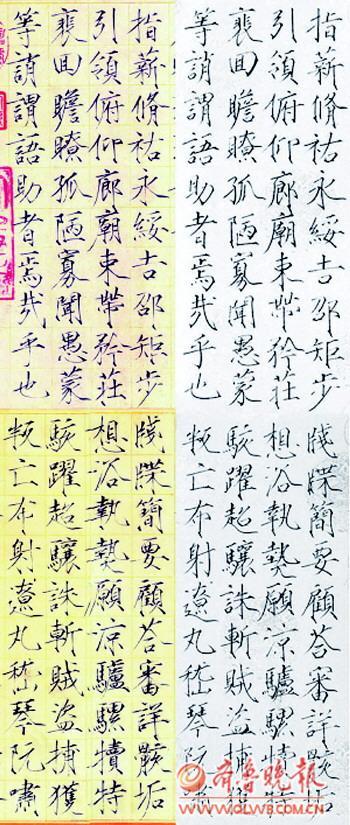 指薪脩祜永綏吉邵矩步
引領俯仰廊廟束帶矜莊
裵回瞻瞭孤陋寡聞愚蒙
等誚謂語助者焉哉乎也
指薪脩祜永綏吉邵矩步
引領俯仰廊廟束帶矜莊
裵回瞻瞭孤陋寡聞愚蒙
等誚謂語助者焉哉乎也
牋牒簡要顧荅審詳骸垢
想浴執熱願涼驢騾犢特
駭躍超驤誅斬賊盜捕獲
叛亡布射遼丸嵇琴阮嘯
牋牒簡要顧荅審詳骸垢
想浴執熱願涼驢騾犢特
駭躍超驤誅斬賊盜捕獲
叛亡布射遼丸嵇琴阮
齐鲁晚报
WWW.QLWB.COM.CN